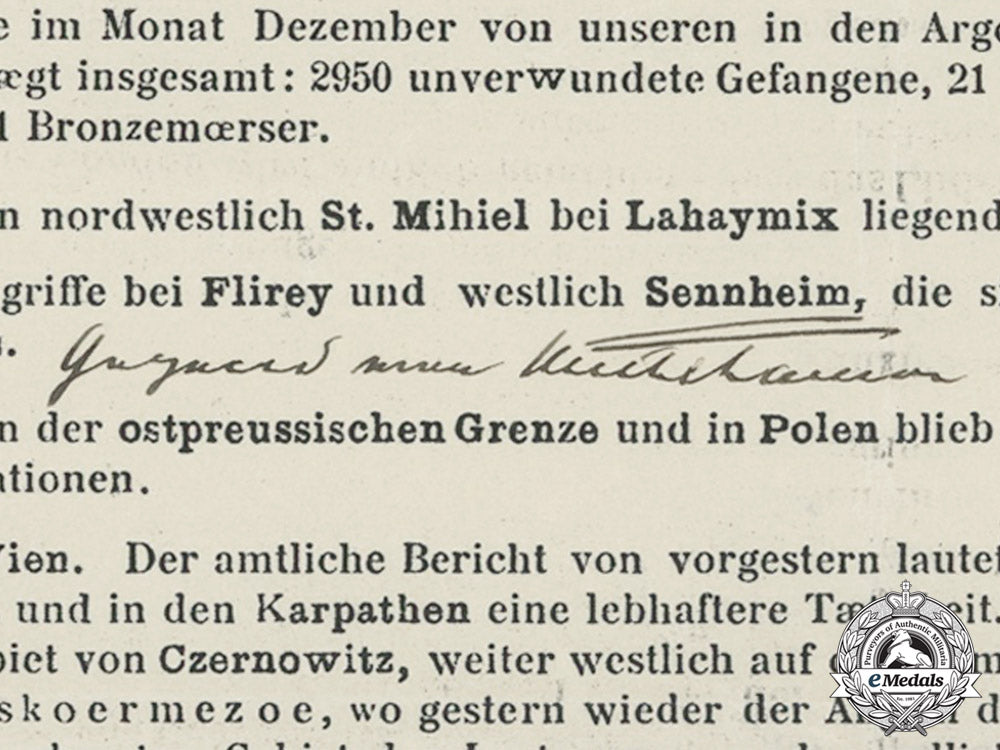 im Monat Dezember von unseren in den
insgesamt: 2950 unverwundete Gefangene, 21
Bronzemœrser.
nordwestlich St. Mihiel bei Lahaymix
griffe bei Flirey und westlich Sennheim, die
der ostpreussischen Grenze und in Polen blieb
ationen.
Der amtliche Bericht von vorgestern
und in den Karpathen eine lebhaftere
von Czernowitz, weiter westlich auf
skoermezoe, wo gestern wieder der
Purveyors of Authentic Militaria
eMedals